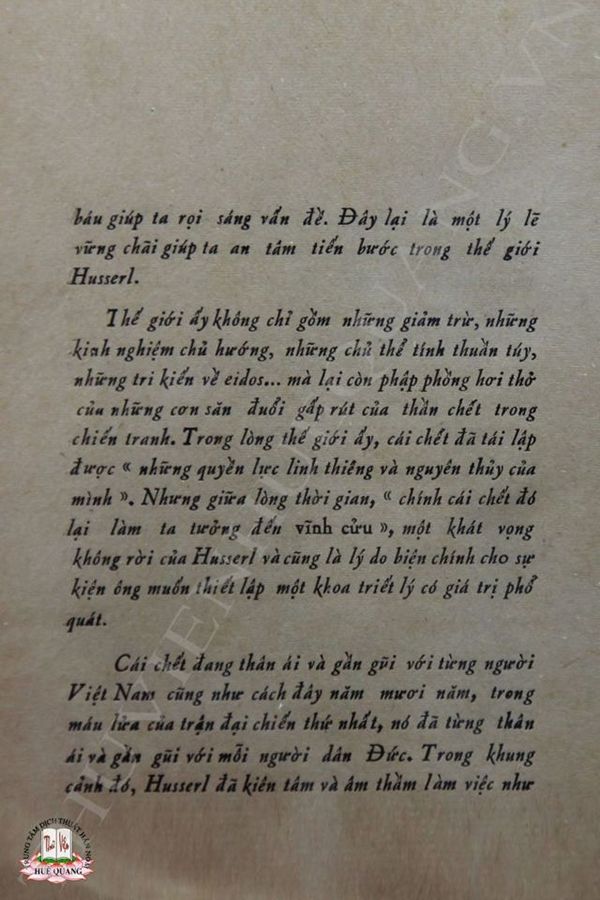 báu giúp ta rọi sáng vấn đề. Đây lại là một lý lẽ
vững chãi giúp ta an tâm tiến bước trong thế giới
Husserl.
Thế giới ấy không chỉ gồm những giảm trừ, những
kinh nghiệm chủ hướng, những chủ thể tính thuần túy,
những tri kiến về eidos... mà lại còn phập phồng hơi thở
của những cơn săn đuổi gấp rút của thần chết trong
chiến tranh. Trong lòng thế giới ấy, cái chết đã tái lập
được « những quyền lực linh thiêng và nguyên thủy của
mình ». Nhưng giữa lòng thời gian, « chính cái chết đó
lại làm ta tưởng đến vĩnh cửu », một khát vọng
không rời của Husserl và cũng là lý do biện chính cho sự
kiện ông muốn thiết lập một khoa triết lý có giá trị phổ
quát.
Cái chết đang thân ái và gần gũi với từng người
Việt Nam cũng như cách đây năm mươi năm, trong
máu lửa của trận đại chiến thứ nhất, nó đã từng thân
ái và gần gũi với mỗi người dân Đức. Trong khung
cảnh đó, Husserl đã kiên tâm và âm thầm làm việc như
TRUNG TÂM DỊCH THUẬT HÁN NÔM
HUỆ QUANG